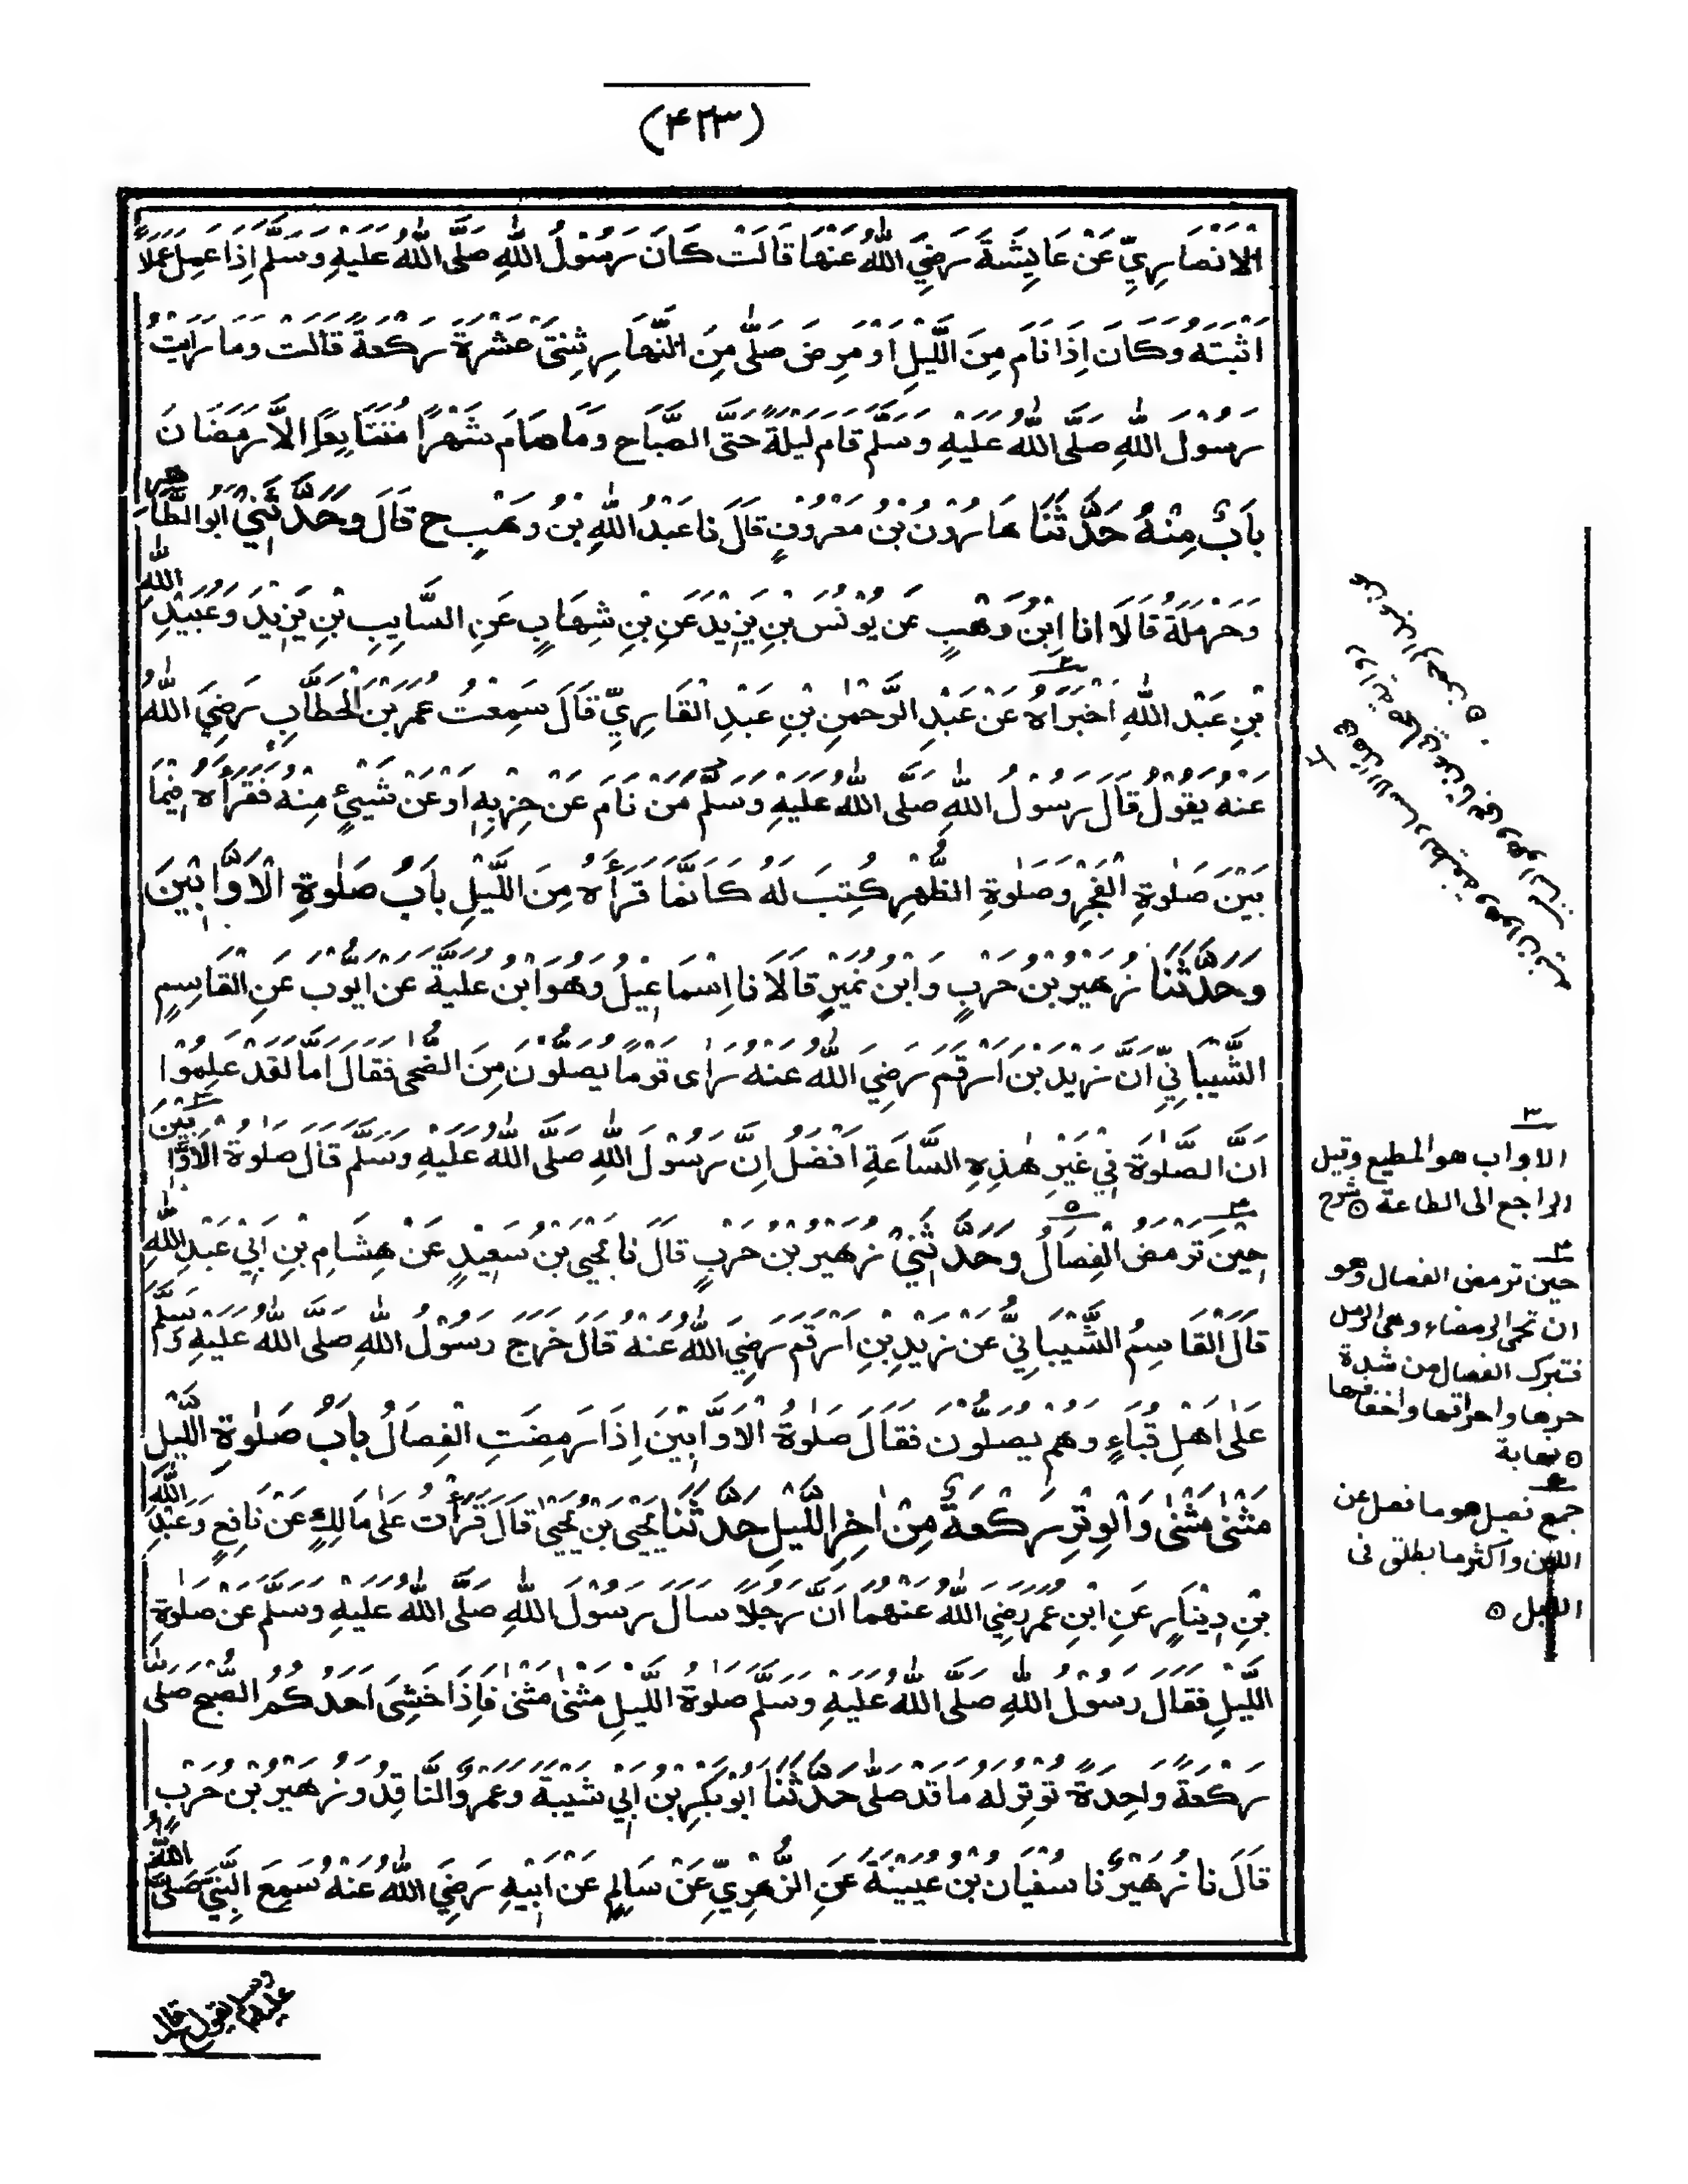 (۴۲۳)
الْاَنْصَارِيِّ عَنْ عَايِشَةَ رَضِيَ اللّٰهُ عَنْهَا قَالَتْ كَانَ رَسُوْلُ اللّٰهِ صَلَّى اللّٰهُ عَلَيْهِ وَسَلَّمَ اِذَا عَمِلَ عَمَلًا
اَثْبَتَهُ وَكَانَ اِذَا نَامَ مِنَ اللَّيْلِ اَوْ مَرِضَ صَلّٰى مِنَ النَّهَارِ ثِنْتَيْ عَشْرَةَ رَكْعَةً قَالَتْ وَمَا رَاَيْتُ
رَسُوْلَ اللّٰهِ صَلَّى اللّٰهُ عَلَيْهِ وَسَلَّمَ قَامَ لَيْلَةً حَتَّى الصَّبَاحِ وَمَا صَامَ شَهْرًا مُتَتَابِعًا اِلَّا رَمَضَانَ
بَابٌ مِنْهُ حَدَّثَنَا هَارُوْنُ بْنُ مَعْرُوْفٍ قَالَ نَا عَبْدُ اللّٰهِ بْنُ وَهْبٍ ح قَالَ وَحَدَّثَنِيْ اَبُو الطَّاهِرِ
وَحَرْمَلَةُ قَالَا اَنَا ابْنُ وَهْبٍ عَنْ يُوْنُسَ بْنِ يَزِيْدَ عَنِ بْنِ شِهَابٍ عَنِ السَّايِبِ بْنِ يَزِيْدَ وَعُبَيْدِ اللّٰهِ
بْنِ عَبْدِ اللّٰهِ اَخْبَرَاهُ عَنْ عَبْدِ الرَّحْمٰنِ بْنِ عَبْدِ الْقَارِيِّ قَالَ سَمِعْتُ عُمَرَ بْنَ الْخَطَّابِ رَضِيَ اللّٰهُ
عَنْهُ يَقُوْلُ قَالَ رَسُوْلُ اللّٰهِ صَلَّى اللّٰهُ عَلَيْهِ وَسَلَّمَ مَنْ نَامَ عَنْ حِزْبِهِ اَوْ عَنْ شَيْءٍ مِنْهُ فَقَرَاَهُ فِيْمَا
بَيْنَ صَلٰوةِ الْفَجْرِ وَصَلٰوةِ الظُّهْرِ كُتِبَ لَهُ كَاَنَّمَا قَرَاَهُ مِنَ اللَّيْلِ بَابُ صَلٰوةِ الْاَوَّابِيْنَ
وَحَدَّثَنَا زُهَيْرُ بْنُ حَرْبٍ وَابْنُ نُمَيْرٍ قَالَا نَا اِسْمَاعِيْلُ وَهُوَ ابْنُ عُلَيَّةَ عَنْ اَيُّوْبَ عَنِ الْقَاسِمِ
الشَّيْبَانِيِّ اَنَّ زَيْدَ بْنَ اَرْقَمَ رَضِيَ اللّٰهُ عَنْهُ رَاٰى قَوْمًا يُصَلُّوْنَ مِنَ الضُّحٰى فَقَالَ اَمَا لَقَدْ عَلِمُوْا
اَنَّ الصَّلٰوةَ فِيْ غَيْرِ هٰذِهِ السَّاعَةِ اَفْضَلُ اِنَّ رَسُوْلَ اللّٰهِ صَلَّى اللّٰهُ عَلَيْهِ وَسَلَّمَ قَالَ صَلٰوةُ الْاَوَّابِيْنَ
حِيْنَ تَرْمَضُ الْفِصَالُ وَحَدَّثَنِيْ زُهَيْرُ بْنُ حَرْبٍ قَالَ نَا يَحْيَى بْنُ سَعِيْدٍ عَنْ هِشَامِ بْنِ اَبِيْ عَبْدِ اللّٰهِ
قَالَ الْقَاسِمُ الشَّيْبَانِيُّ عَنْ زَيْدِ بْنِ اَرْقَمَ رَضِيَ اللّٰهُ عَنْهُ قَالَ خَرَجَ رَسُوْلُ اللّٰهِ صَلَّى اللّٰهُ عَلَيْهِ وَسَلَّمَ
عَلٰى اَهْلِ قُبَاءٍ وَهُمْ يُصَلُّوْنَ فَقَالَ صَلٰوةُ الْاَوَّابِيْنَ اِذَا رَمِضَتِ الْفِصَالُ بَابُ صَلٰوةِ اللَّيْلِ
مَثْنٰى مَثْنٰى وَالْوِتْرِ رَكْعَةً مِنْ اٰخِرِ اللَّيْلِ حَدَّثَنَا يَحْيَى بْنُ يَحْيٰى قَالَ قَرَاْتُ عَلٰى مَالِكٍ عَنْ نَافِعٍ وَعَبْدِ اللّٰهِ
بْنِ دِيْنَارٍ عَنِ ابْنِ عُمَرَ رَضِيَ اللّٰهُ عَنْهُمَا اَنَّ رَجُلًا سَاَلَ رَسُوْلَ اللّٰهِ صَلَّى اللّٰهُ عَلَيْهِ وَسَلَّمَ عَنْ صَلٰوةِ
اللَّيْلِ فَقَالَ رَسُوْلُ اللّٰهِ صَلَّى اللّٰهُ عَلَيْهِ وَسَلَّمَ صَلٰوةُ اللَّيْلِ مَثْنٰى مَثْنٰى فَاِذَا خَشِيَ اَحَدُكُمُ الصُّبْحَ صَلّٰى
رَكْعَةً وَاحِدَةً تُوْتِرُ لَهُ مَا قَدْ صَلّٰى حَدَّثَنَا اَبُوْ بَكْرِ بْنُ اَبِيْ شَيْبَةَ وَعَمْرٌو النَّاقِدُ وَزُهَيْرُ بْنُ حَرْبٍ
قَالَ نَا زُهَيْرٌ نَا سُفْيَانُ بْنُ عُيَيْنَةَ عَنِ الزُّهْرِيِّ عَنْ سَالِمٍ عَنْ اَبِيْهِ رَضِيَ اللّٰهُ عَنْهُ سَمِعَ النَّبِيَّ صَلَّى اللّٰهُ
۳
الاواب هو المطيع وقيل
الراجع الى الطاعة شرح
۴
حين ترمض الفصال وهو
ان تحمى الرمضاء وهى الرمل
فتبرك الفصال من شدة
حرها واحراقها واخفافها
نهاية
جمع فصيل هو ما فصل عن
اللبن واكثر ما يطلق فى
الابل
عليه وسلم يقول قال